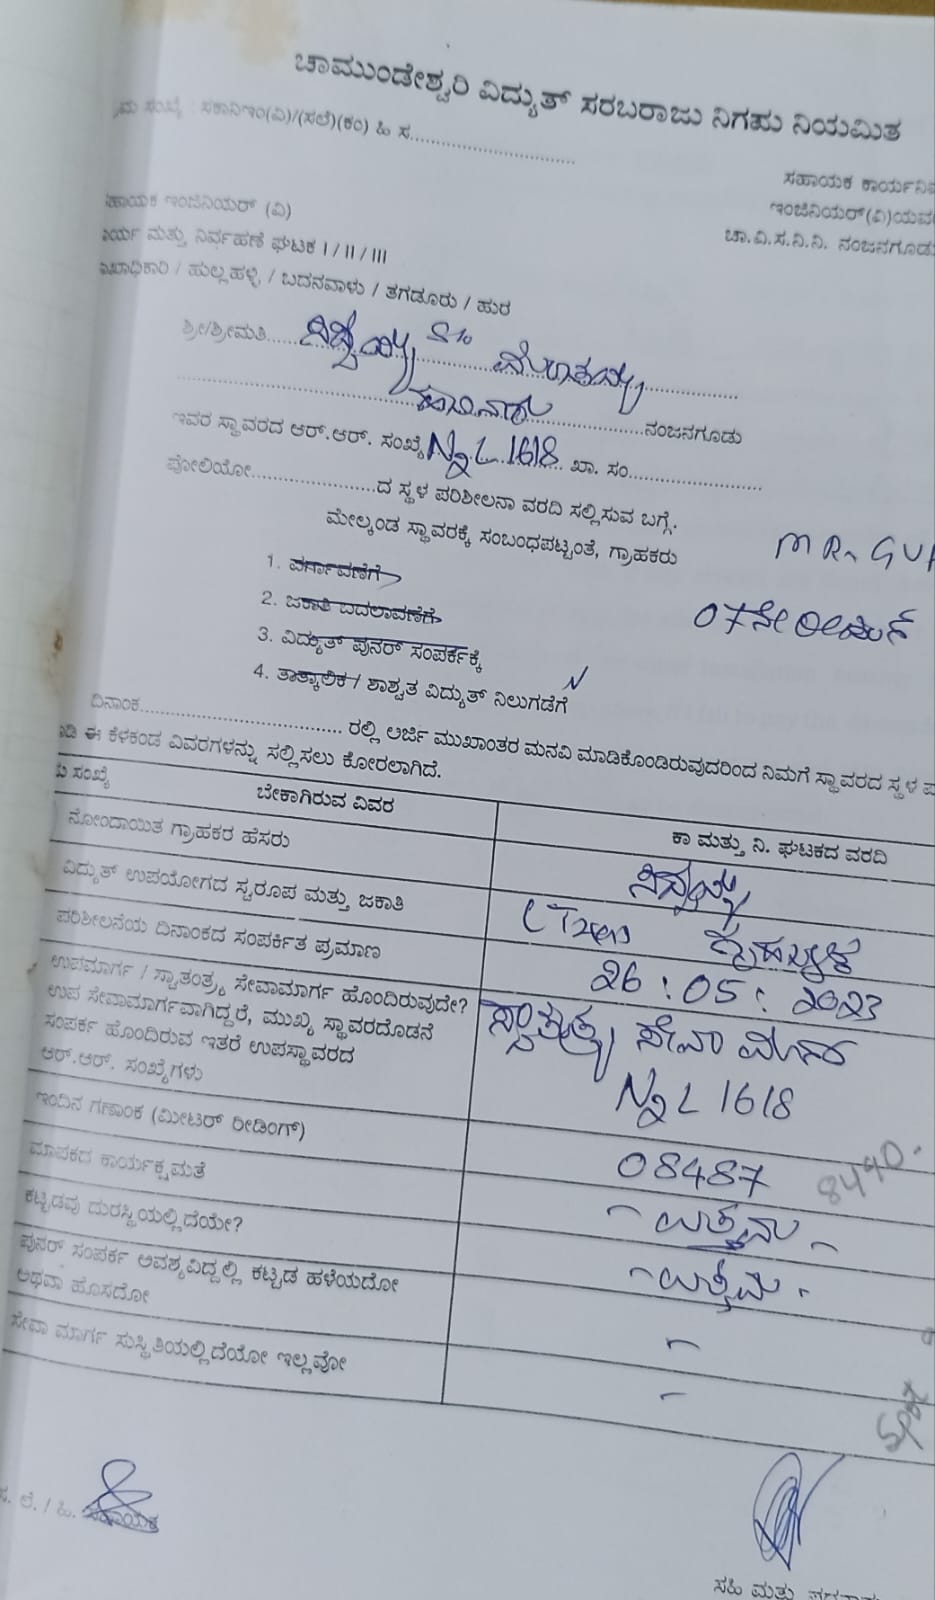 ಚಾಮುಂಡೇಶ್ವರಿ ವಿದ್ಯುತ್ ಸರಬರಾಜು ನಿಗಮ ನಿಯಮಿತ
ಸಂಖ್ಯೆ : ಸಕಾನಿಇಂ(ವಿ)/(ಸಲೆ)(ಕಂ) ಹಿ ಸ..............................
ಸಹಾಯಕ ಕಾರ್ಯನಿ
ಇಂಜಿನಿಯರ್(ವಿ)ಯವ
ಚಾ.ವಿ.ಸ.ನಿ.ನಿ. ನಂಜನಗೂಡು
ಹಾಯಕ ಇಂಜಿನಿಯರ್ (ವಿ)
ರ್ಯ ಮತ್ತು ನಿರ್ವಹಣೆ ಘಟಕ I / II / III
ಖಾಧಿಕಾರಿ / ಹುಲ್ಲಹಳ್ಳಿ / ಬದನವಾಳು / ತಗಡೂರು / ಹುರ
ಶ್ರೀ/ಶ್ರೀಮತಿ...... S/o
ನಂಜನಗೂಡು
ಇವರ ಸ್ಥಾವರದ ಆರ್.ಆರ್. ಸಂಖ್ಯೆ N2L 1618 ಖಾ. ಸಂ.........................
ಪೋಲಿಯೋ.......................ದ ಸ್ಥಳ ಪರಿಶೀಲನಾ ವರದಿ ಸಲ್ಲಿಸುವ ಬಗ್ಗೆ.
ಮೇಲ್ಕಂಡ ಸ್ಥಾವರಕ್ಕೆ ಸಂಬಂಧಪಟ್ಟಂತೆ, ಗ್ರಾಹಕರು
1. ವರ್ಗಾವಣೆಗೆ
2. ಜಕಾತಿ ಬದಲಾವಣೆಗೆ
3. ವಿದ್ಯುತ್ ಪುನರ್ ಸಂಪರ್ಕಕ್ಕೆ
4. ತಾತ್ಕಾಲಿಕ / ಶಾಶ್ವತ ವಿದ್ಯುತ್ ನಿಲುಗಡೆಗೆ
ದಿನಾಂಕ.................................... ರಲ್ಲಿ ಅರ್ಜಿ ಮುಖಾಂತರ ಮನವಿ ಮಾಡಿಕೊಂಡಿರುವುದರಿಂದ ನಿಮಗೆ ಸ್ಥಾವರದ ಸ್ಥಳ
ಈ ಕೆಳಕಂಡ ವಿವರಗಳನ್ನು ಸಲ್ಲಿಸಲು ಕೋರಲಾಗಿದೆ.
ಸಂಖ್ಯೆ ಬೇಕಾಗಿರುವ ವಿವರ ಕಾ ಮತ್ತು ನಿ. ಘಟಕದ ವರದಿ
ನೋಂದಾಯಿತ ಗ್ರಾಹಕರ ಹೆಸರು
ವಿದ್ಯುತ್ ಉಪಯೋಗದ ಸ್ವರೂಪ ಮತ್ತು ಜಕಾತಿ
ಪರಿಶೀಲನೆಯ ದಿನಾಂಕದ ಸಂಪರ್ಕಿತ ಪ್ರಮಾಣ 26 : 05 : 2023
ಉಪಮಾರ್ಗ / ಸ್ವಾತಂತ್ರ್ಯ ಸೇವಾಮಾರ್ಗ ಹೊಂದಿರುವುದೇ?
ಉಪ ಸೇವಾಮಾರ್ಗವಾಗಿದ್ದರೆ, ಮುಖ್ಯ ಸ್ಥಾವರದೊಡನೆ
ಸಂಪರ್ಕ ಹೊಂದಿರುವ ಇತರೆ ಉಪಸ್ಥಾವರದ
ಆರ್.ಆರ್. ಸಂಖ್ಯೆಗಳು N2L 1618
ಇಂದಿನ ಗಣಾಂಕ (ಮೀಟರ್ ರೀಡಿಂಗ್) 08487 8490.
ಮಾಪಕದ ಕಾರ್ಯಕ್ಷಮತೆ - ಉತ್ತಮ -
ಕಟ್ಟಡವು ದುರಸ್ಥಿಯಲ್ಲಿದೆಯೇ? - ಉತ್ತಮ -
ಪುನರ್ ಸಂಪರ್ಕ ಅವಶ್ಯವಿದ್ದಲ್ಲಿ ಕಟ್ಟಡ ಹಳೆಯದೋ
ಅಥವಾ ಹೊಸದೋ -
ಸೇವಾ ಮಾರ್ಗ ಸುಸ್ಥಿತಿಯಲ್ಲಿದೆಯೋ ಇಲ್ಲವೋ -
Spot
ಸ. ಲೆ. / ಹಿ. ಸಹಾಯಕ
ಸಹಿ ಮತ್ತು ಪದನಾಮ